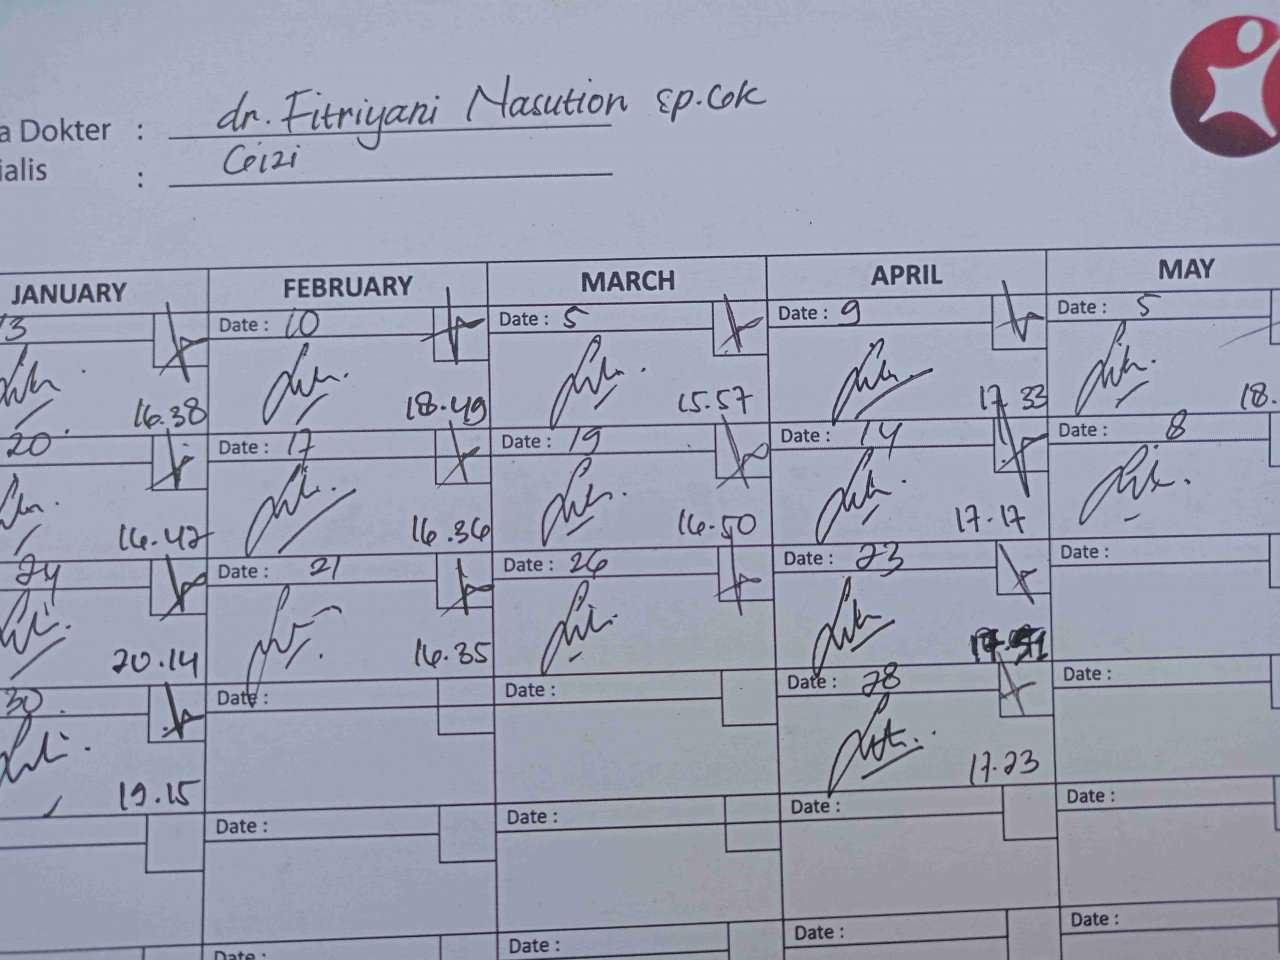 a Dokter : dr. Fitriyani Nasution sp.GK
ialis : Gizi
JANUARY FEBRUARY MARCH APRIL MAY
13 Date : 10 Date : 5 Date : 9 Date : 5
16.38 18.49 15.57 17.33 18.
20 Date : 17 Date : 19 Date : 14 Date : 8
16.47 16.36 16.50 17.17
24 Date : 21 Date : 26 Date : 23 Date :
20.14 16.35
30 Date : Date : Date : 28 Date :
19.15 17.23
Date : Date : Date : Date :
Date : Date : Date : Date :